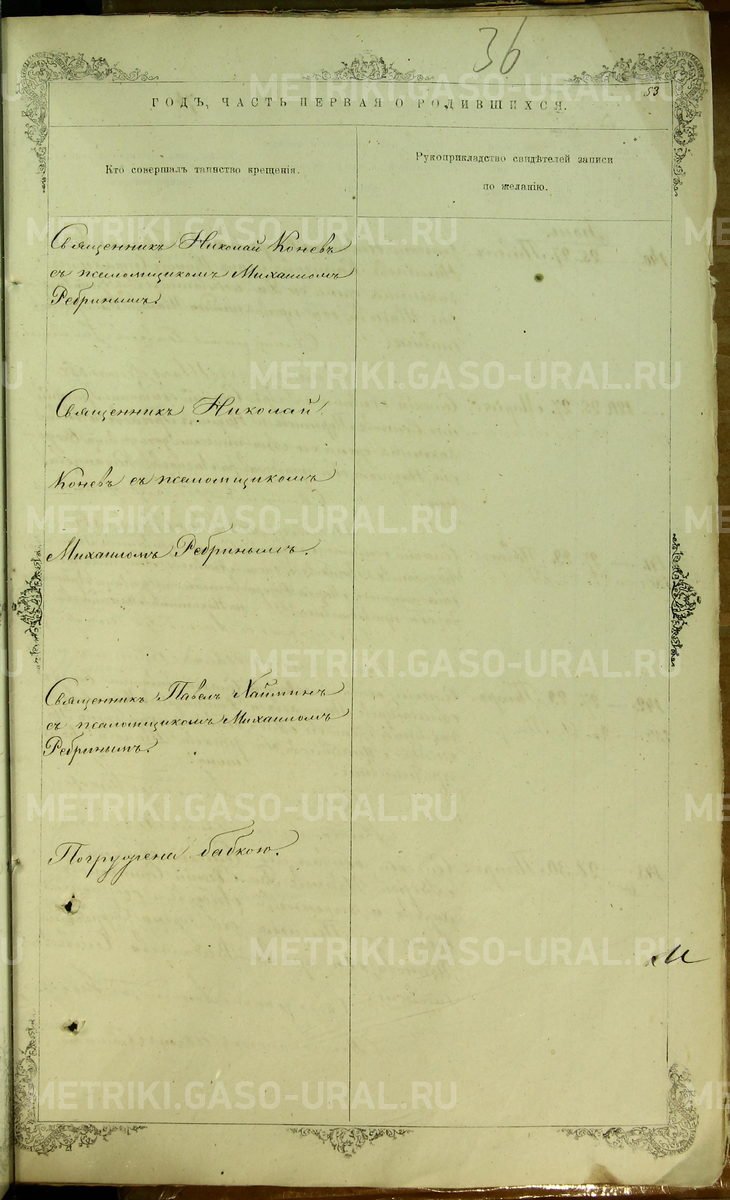 36
53
ГОДЪ, ЧАСТЬ ПЕРВАЯ О РОДИВШИХСЯ.
Кто совершалъ таинство крещенія.
Рукоприкладство свидѣтелей записи
по желанію.
Священникъ Николай Коневъ
съ псаломщикомъ Михаиломъ
Ребринымъ.
Священникъ Николай
Коневъ съ псаломщикомъ
Михаиломъ Ребринымъ.
Священникъ Павелъ Наймит
съ псаломщикомъ Михаиломъ
Ребринымъ.
Погружени бабкою.
METRIKI.GASO-URAL.RU